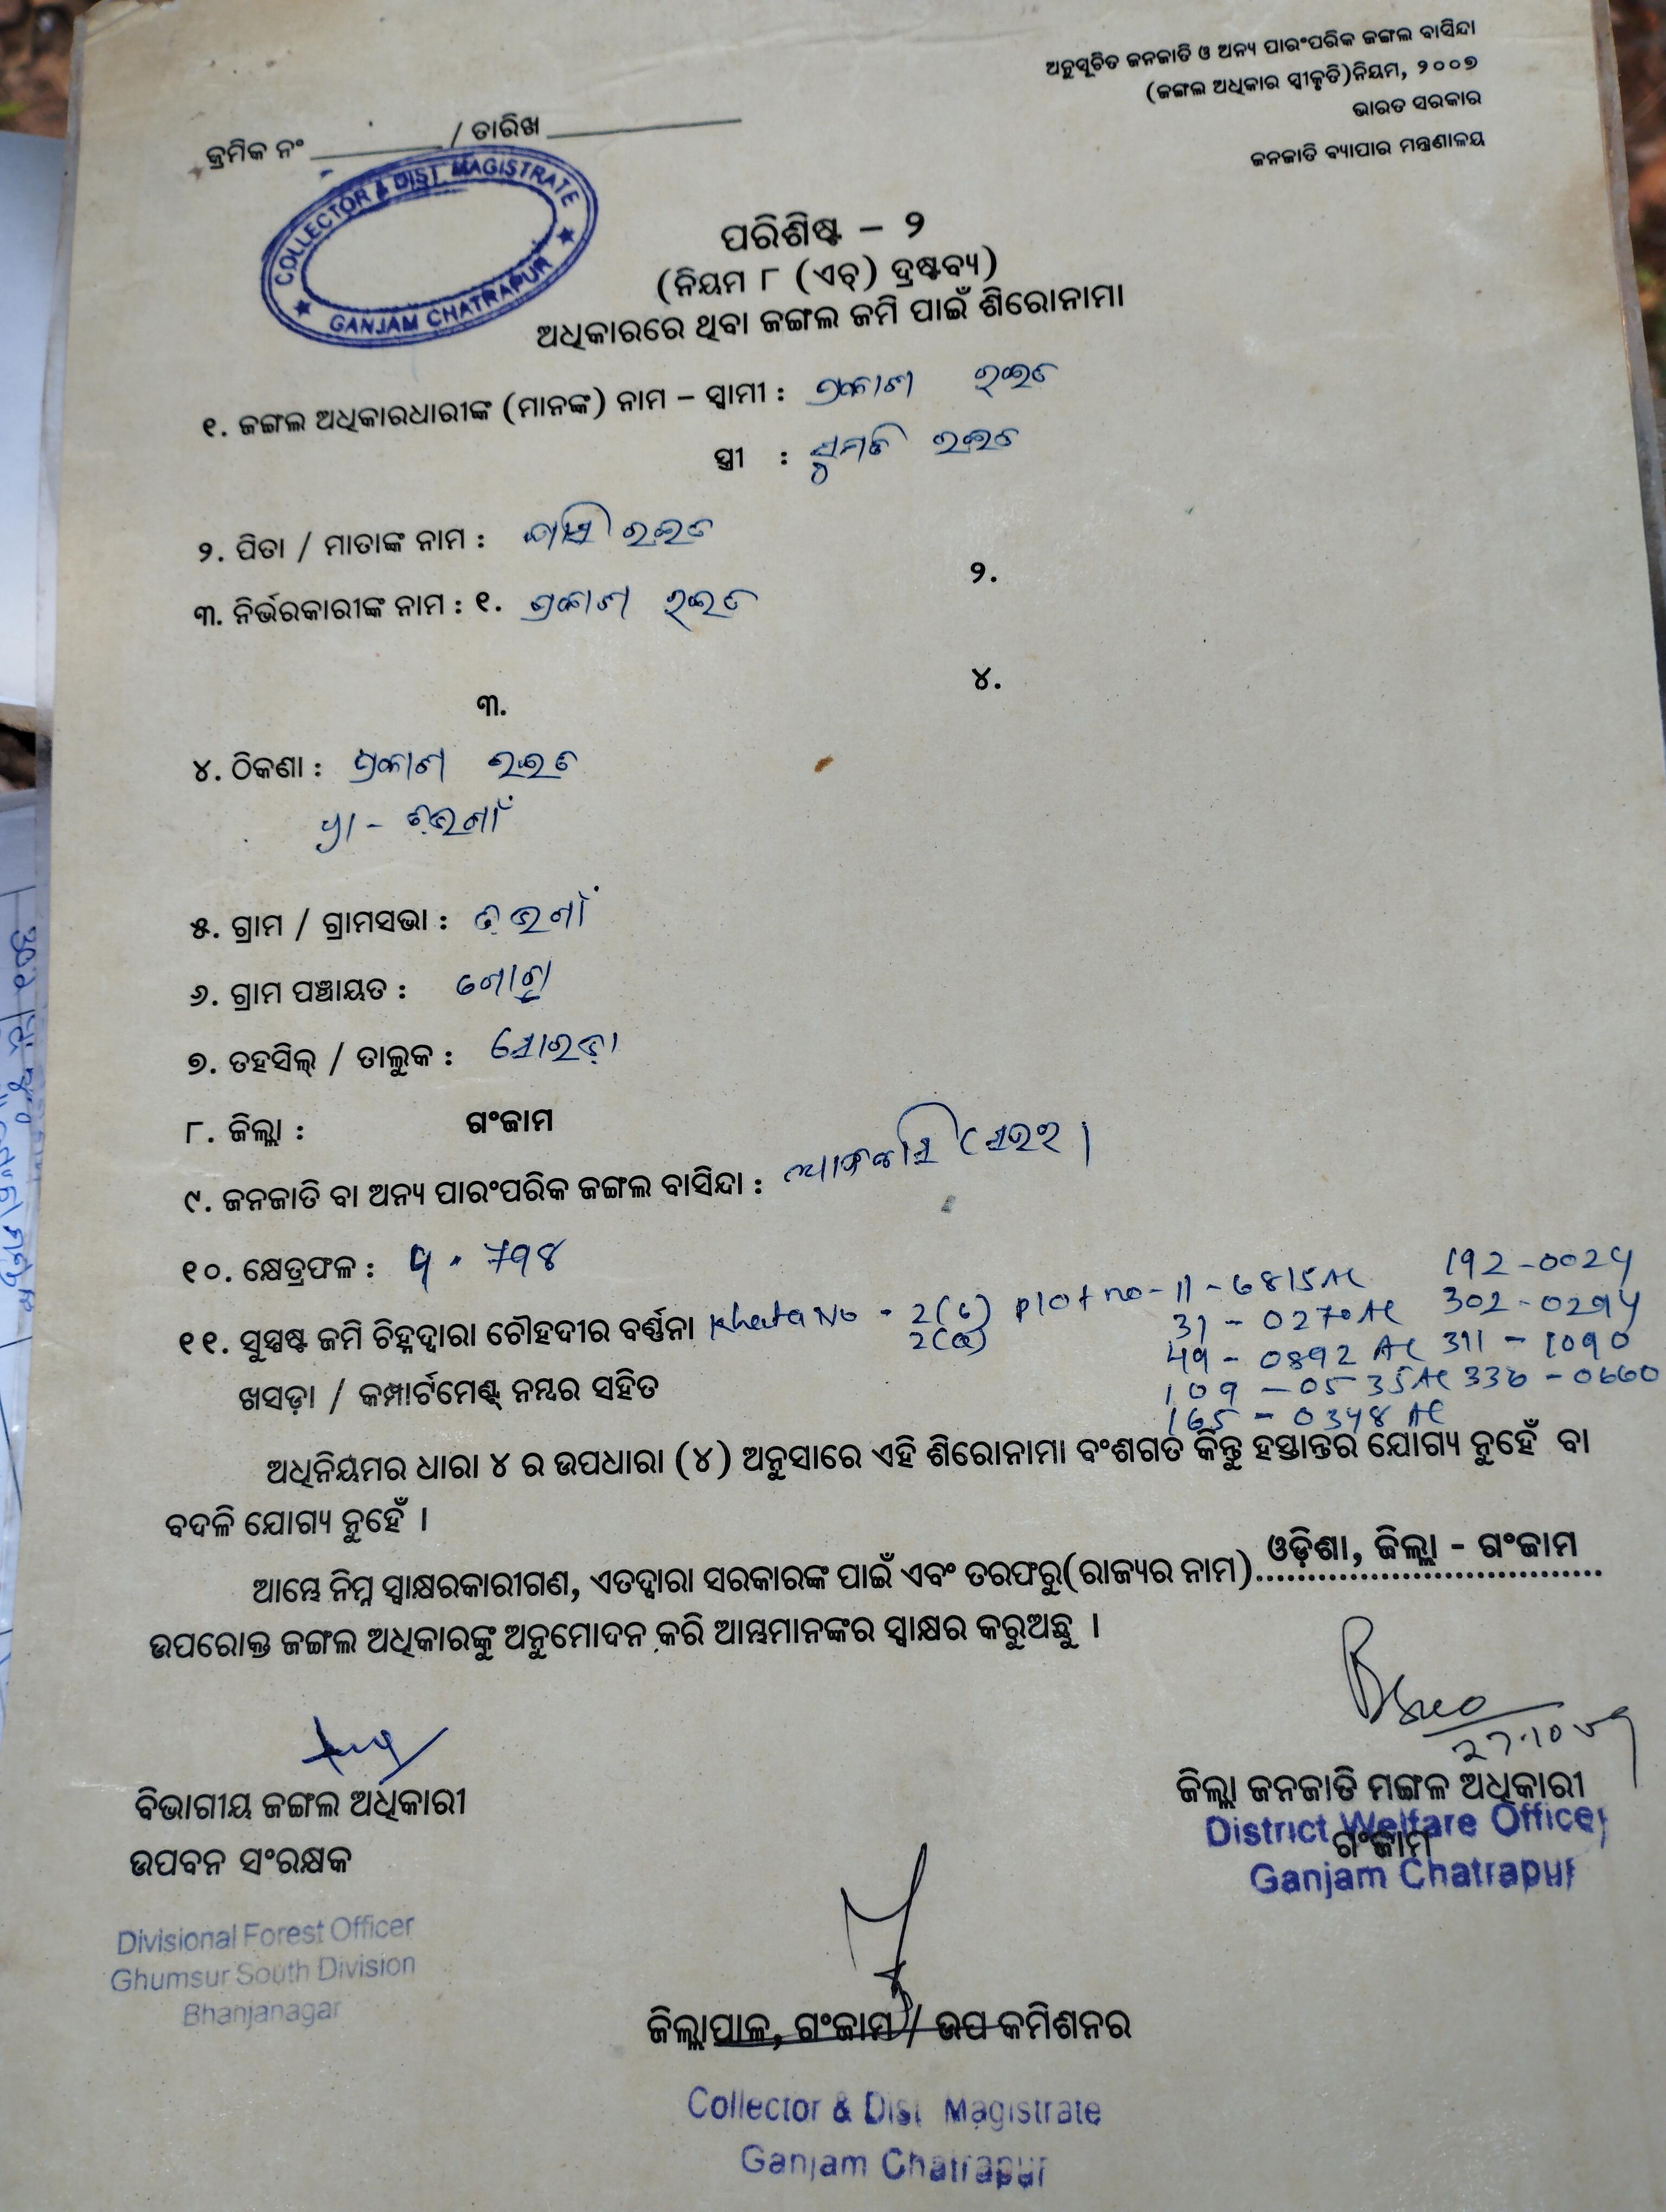 ଅନୁସୂଚିତ ଜନଜାତି ଓ ଅନ୍ୟ ପାରଂପରିକ ଜଙ୍ଗଲ ବାସିନ୍ଦା
(ଜଙ୍ଗଲ ଅଧିକାର ସ୍ୱୀକୃତି)ନିୟମ, ୨୦୦୭
ଭାରତ ସରକାର
ଜନଜାତି ବ୍ୟାପାର ମନ୍ତ୍ରଣାଳୟ
କ୍ରମିକ ନଂ / ତାରିଖ
COLLECTOR & DIST. MAGISTRATE
GANJAM CHATRAPUR
ପରିଶିଷ୍ଟ – ୨
(ନିୟମ ୮ (ଏଚ୍) ଦ୍ରଷ୍ଟବ୍ୟ)
ଅଧିକାରରେ ଥିବା ଜଙ୍ଗଲ ଜମି ପାଇଁ ଶିରୋନାମା
୧. ଜଙ୍ଗଲ ଅଧିକାରଧାରୀଙ୍କ (ମାନଙ୍କ) ନାମ – ସ୍ୱାମୀ : ପ୍ରକାଶ ରଇତ
ସ୍ତ୍ରୀ : ସୁମତି ରଇତ
୨. ପିତା / ମାତାଙ୍କ ନାମ : ରଇତ
୩. ନିର୍ଭରକାରୀଙ୍କ ନାମ : ୧. ପ୍ରକାଶ ରଇତ ୨.
୩. ୪.
୪. ଠିକଣା : ପ୍ରକାଶ ରଇତ
୫. ଗ୍ରାମ / ଗ୍ରାମସଭା :
୬. ଗ୍ରାମ ପଞ୍ଚାୟତ :
୭. ତହସିଲ୍ / ତାଲୁକ : ସୋରଡ଼ା
୮. ଜିଲ୍ଲା : ଗଂଜାମ
୯. ଜନଜାତି ବା ଅନ୍ୟ ପାରଂପରିକ ଜଙ୍ଗଲ ବାସିନ୍ଦା :
୧୦. କ୍ଷେତ୍ରଫଳ :
୧୧. ସୁସ୍ପଷ୍ଟ ଜମି ଚିହ୍ନଦ୍ୱାରା ଚୌହଦୀର ବର୍ଣ୍ଣନା Khata No - 2(b) plot no - 11 - 6815 AC 192 - 0024
2(a) 31 - 0270 AC 302 - 0294
49 - 0892 AC 311 - 1090
ଖସଡ଼ା / କମ୍ପାର୍ଟମେଣ୍ଟ ନମ୍ବର ସହିତ 109 - 0535 AC 336 - 0660
165 - 0348 AC
ଅଧିନିୟମର ଧାରା ୪ ର ଉପଧାରା (୪) ଅନୁସାରେ ଏହି ଶିରୋନାମା ବଂଶଗତ କିନ୍ତୁ ହସ୍ତାନ୍ତର ଯୋଗ୍ୟ ନୁହେଁ ବା
ବଦଳି ଯୋଗ୍ୟ ନୁହେଁ ।
ଆମ୍ଭେ ନିମ୍ନ ସ୍ୱାକ୍ଷରକାରୀଗଣ, ଏତଦ୍ୱାରା ସରକାରଙ୍କ ପାଇଁ ଏବଂ ତରଫରୁ(ରାଜ୍ୟର ନାମ) ଓଡ଼ିଶା, ଜିଲ୍ଲା - ଗଂଜାମ
ଉପରୋକ୍ତ ଜଙ୍ଗଲ ଅଧିକାରଙ୍କୁ ଅନୁମୋଦନ କରି ଆମ୍ଭମାନଙ୍କର ସ୍ୱାକ୍ଷର କରୁଅଛୁ ।
ବିଭାଗୀୟ ଜଙ୍ଗଲ ଅଧିକାରୀ
ଉପବନ ସଂରକ୍ଷକ
Divisional Forest Officer
Ghumsur South Division
Bhanjanagar
ଜିଲ୍ଲା ଜନଜାତି ମଙ୍ଗଳ ଅଧିକାରୀ
District Welfare Officer
ଗଂଜାମ
Ganjam Chatrapur
ଜିଲ୍ଲାପାଳ, ଗଂଜାମ / ଉପ କମିଶନର
Collector & Dist Magistrate
Ganjam Chatrapur